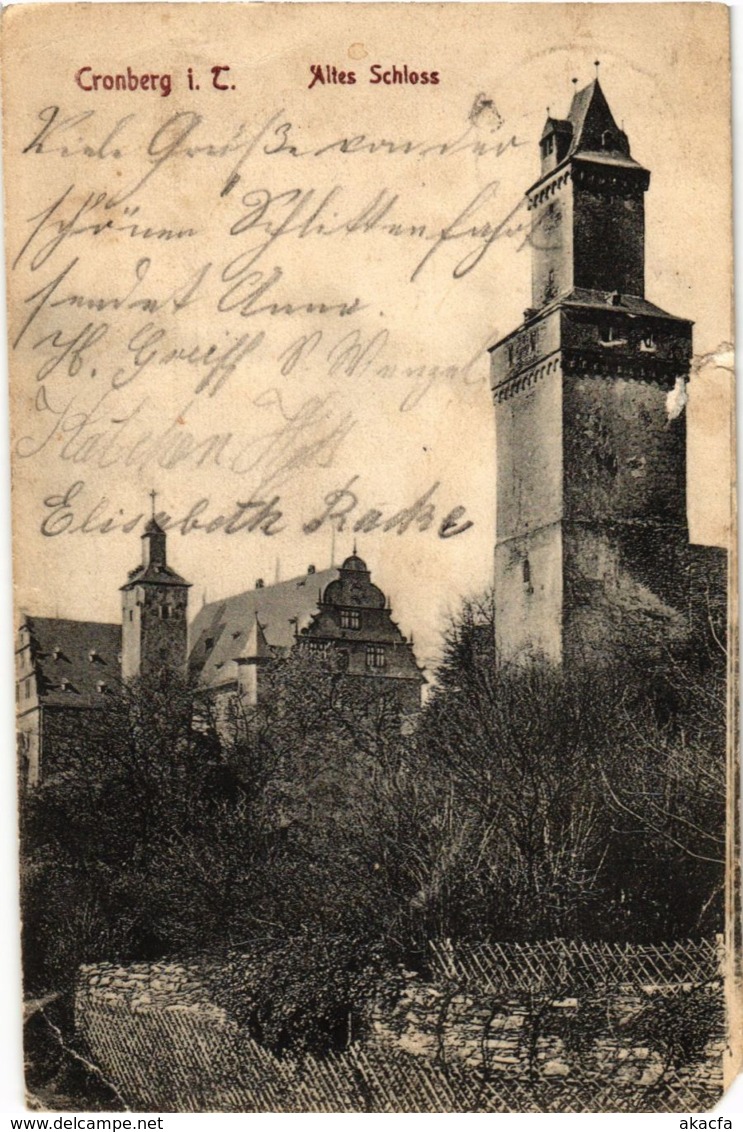 Cronberg i. T. Altes Schloss
Viele Grüße von der
schönen Schlittenfahrt
sendet Anna.
H. Greiff S. Wenzel
Kätchen
Elisabeth Racke
akacfa akacfa